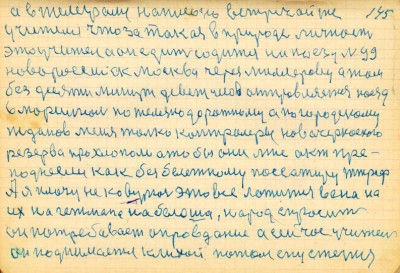 а в телеграму написано встречай же 145
учителя что за такая в природе личность
это учитель а он едит садится на поезд N 99
новороссийск москва через миллерово а там
без десяти минут девет часов отправляется поезд
в морозовск по железнодорожному а по городскому
жданов меня только контралеры новочеркаского
резерва прохлопали а то бы они мне акт пре-
поднесли как без белетному пассажиру штраф
А я плачу не ковульт это все ложится вена на
их начетмена на балаша, народ спросит
он потребавает оправдание а сейчас учитель
он поднимается клихой потом спустетия